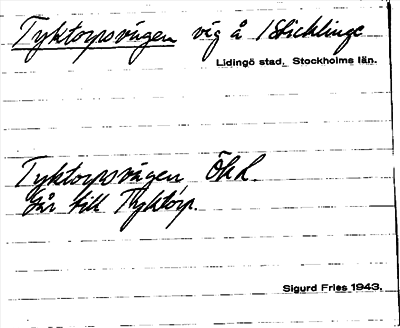 Tyktorpsvägen väg å Sticklinge
Lidingö stad. Stockholms län.
Tyktorpsvägen Ökd.
Går till Tyktorp.
Sigurd Fries 1943.